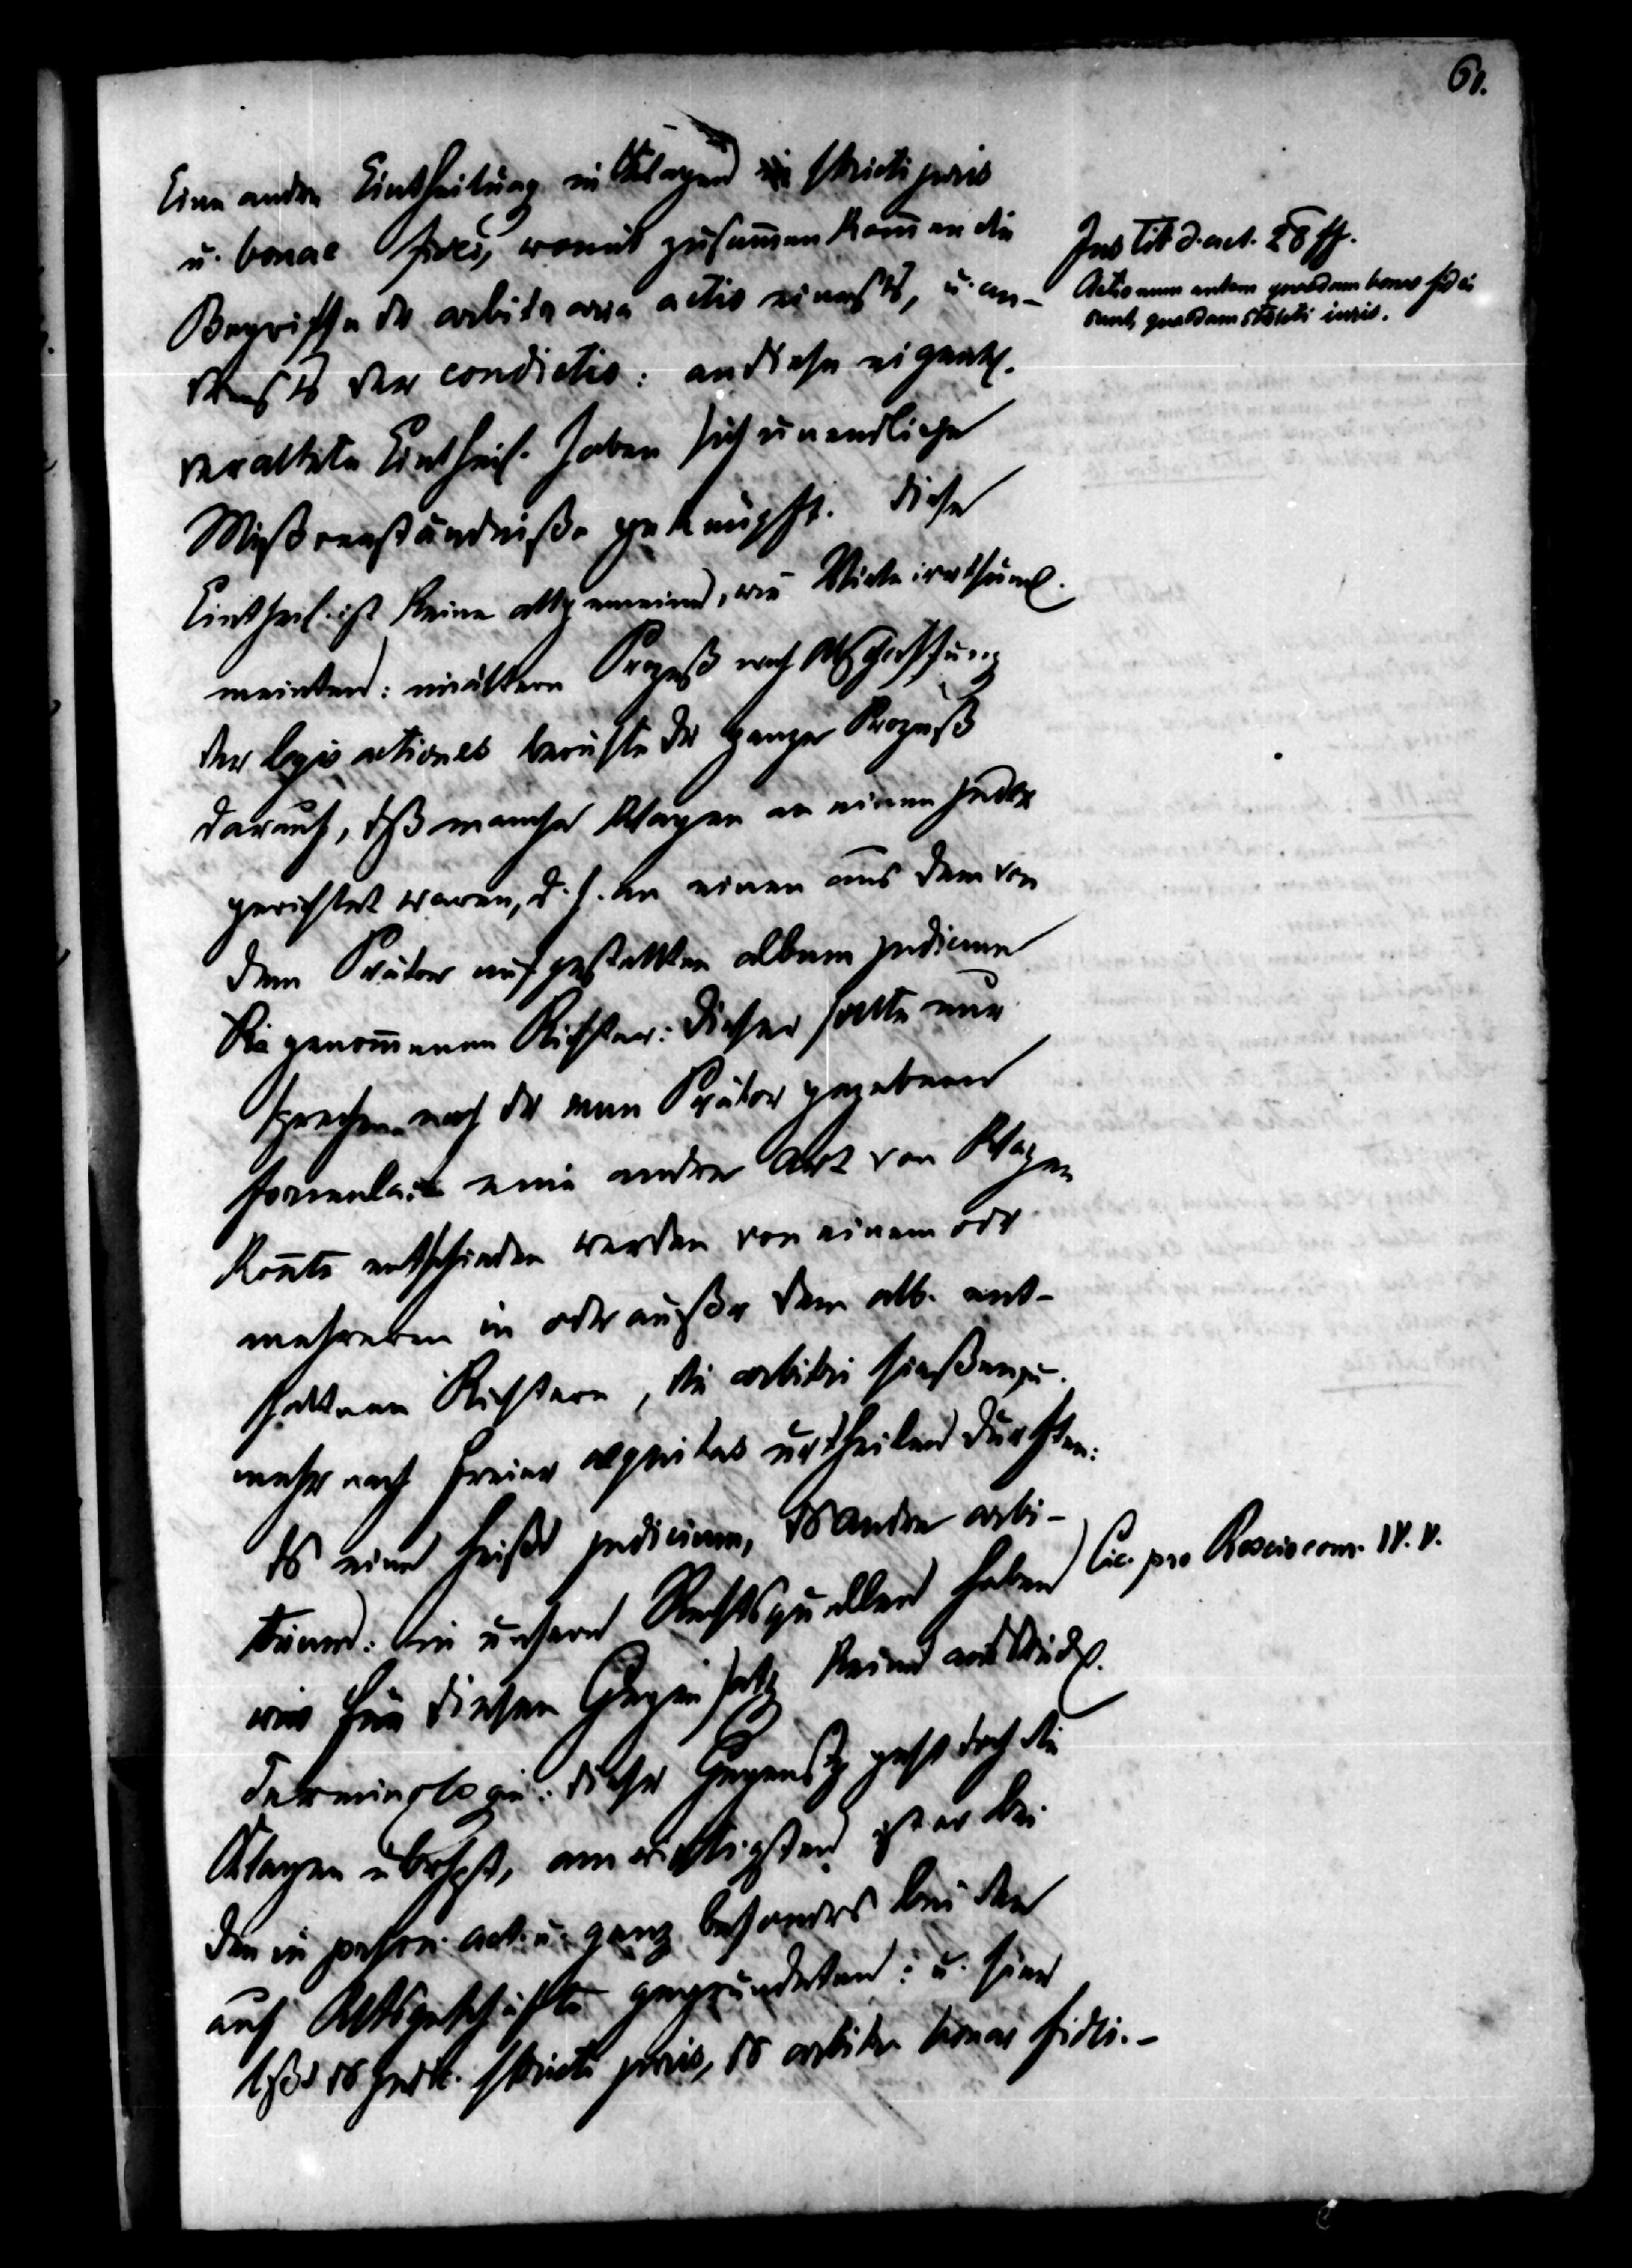 61.
Eine andre Eintheilung in Klagen stricti juris
u. bonae fidei, womit zusam̄en kom̄en die
Begriffe der arbitraria actio einerSts, u. an-
drerSts der condictio: an diese eigentl.
veraltete Eintheil. haben sich unendliche
Mißverständniße geknüpft. Diese
Eintheil. ist keine allgemeine, wie Viele irrthüml.
meinten: im ältern Prozeß nach Abschaffung
der legis actiones beruhte der ganze Prozeß
darauf, dß manche Klagen an einen judex
gerichtet waren, d. h. an einen aus dem von
dem Prätor aufgestellten album judicum
genom̄enen Richter: dieser hatte nur
sprechen nach der vom Prätor gegebenen
formula: eine andre Art von Klagen
kon̄te entschieden werden von einem odr
mehreren in oder außer dem alb. ent-
haltenen Richtern, die arbitri hießen u.
mehr nach freier aequitas urtheilen durften:
ds eine heißt judicium, ds andre arbi-
trium: in unsern Rechtsquellen haben
wir für diesen Gegensatz keine ausdrückl.
Terminologie: dieser Gegensatz geht durch die
Klagen übrhpt, am wichtigsten ist er bei
den in person. act. u. ganz besonders bei den
auf Rtsgeschäfte gegründeten: u. hier
hßt ds judic. stricti juris, ds arbitr. bonae fidei. -
Inst tit d. act. 28 ff.
Actionum autem quaedam bonae fidei
sunt, quaedam stricti iuris.
Cic. pro Roscio com. IV. V.